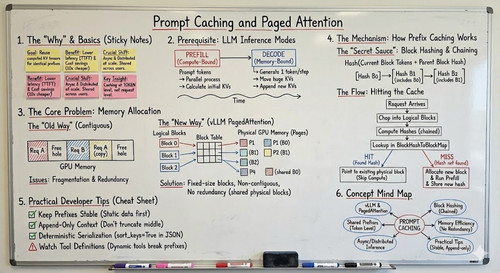 Prompt Caching and Paged Attention
1. The "Why" & Basics (Sticky Notes)
Goal: Reuse
computed KV tensors
for identical prefixes
Benefit: Lower
latency (TTFT) &
Cost savings
(10x cheaper)
Crucial Shift:
Async & Distributed
at scale. Shared
across users.
Benefit: Lower
latency (TTFT) &
Cost savings
(10x cheaper)
Crucial Shift:
Async & Distributed
at scale. Shared
across users.
Key Insight:
Caching at TOKEN
level, not request
level.
2. Prerequisite: LLM Inference Modes
PREFILL
(Compute-Bound)
DECODE
(Memory-Bound)
Prompt tokens
→ Parallel process
→ Calculate initial KVs
→ Generate 1 token/step
→ Move huge KVs
→ Append new KVs
Time
3. The Core Problem: Memory Allocation
The "Old Way" (Contiguous)
Req A
Free hole
Req B
Req A (copy)
Free hole
GPU Memory
Issues: Fragmentation & Redundancy
The "New Way" (vLLM PagedAttention)
Logical Blocks
Block Table
Physical GPU Memory (Pages)
Block 0
Block 1
Block 2
P1
(B0)
P1
(B0)
(B1)
P2
(B1)
(B2)
P4
(shared B0)
Solution: Fixed-size blocks, Non-contiguous,
No redundancy (shared physical blocks)
4. The Mechanism: How Prefix Caching Works
The "Secret Sauce": Block Hashing & Chaining
Hash(Current Block Tokens + Parent Block Hash)
Hash B0
Hash B1
(includes B0)
Hash B2
(includes B1)
The Flow: Hitting the Cache
Request Arrives
Chop into Logical Blocks
Compute Hashes (chained)
Lookup in BlockHashToBlockMap
HIT
(Found Hash)
MISS
(Hash not found)
Point to existing physical block
(Skip Compute)
Allocate new block
& Run Prefill
& Store new hash
5. Practical Developer Tips (Cheat Sheet)
Keep Prefixes Stable (Static data first)
Append-Only Context (Don't truncate middle)
Deterministic Serialization (sort_keys=True in JSON)
Watch Tool Definitions (Dynamic tools break prefixes)
6. Concept Mind Map
vLLM &
PagedAttention
Block Hashing
(Chained)
Shared Prefixes
(Token Level)
PROMPT
CACHING
Memory Efficiency
(No Redundancy)
Async/Distributed
Inference
Practical Tips
(Stable, Append-only)